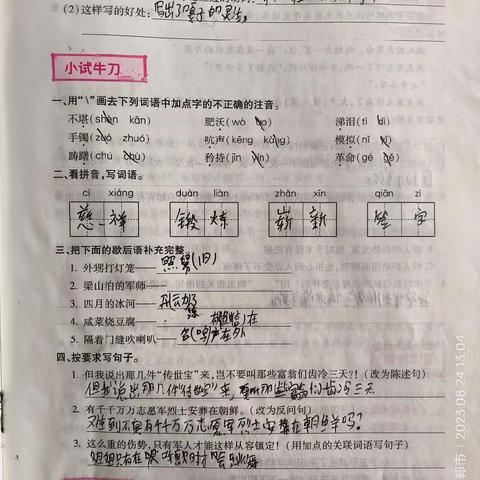 (2)这样写的好处:写出了
小试牛刀
一、用"\"画去下列词语中加点字的不正确的注音。
不堪(shèn kān) 肥沃(wò ) 涕泪(tì lì)
手镯( zhuó) 吭声(kēng kàng) 模拟(nǐ )
踌躇(chú ) 矜持(jīn ) 革命(gé )
二、看拼音,写词语。
cí xiáng duàn liàn zhǎn xīn qiān zì
慈祥 锻炼 崭新 签字
三、把下面的歇后语补充完整
1. 外甥打灯笼——照舅(旧)
2. 梁山泊的军师——
3. 四月的冰河——开动了
4. 咸菜烧豆腐——在
5. 隔着门缝吹喇叭——名(鸣)声在外
四、按要求写句子。
1. 但我说出那几件"传世宝"来,岂不要叫那些富翁们齿冷三天?!(改为陈述句)
但我说出那几件传世宝来,要叫那些富翁们齿冷三天
2. 有千千万万志愿军烈士安葬在朝鲜。(改为反问句)
难道不有千千万万志愿军烈士安葬在朝鲜吗?
3. 这么重的伤势,只有军人才能这样从容镇定!(用加点的关联词语写句子)
姐姐只有在
邯郸市 | 2023.08.24 13:04